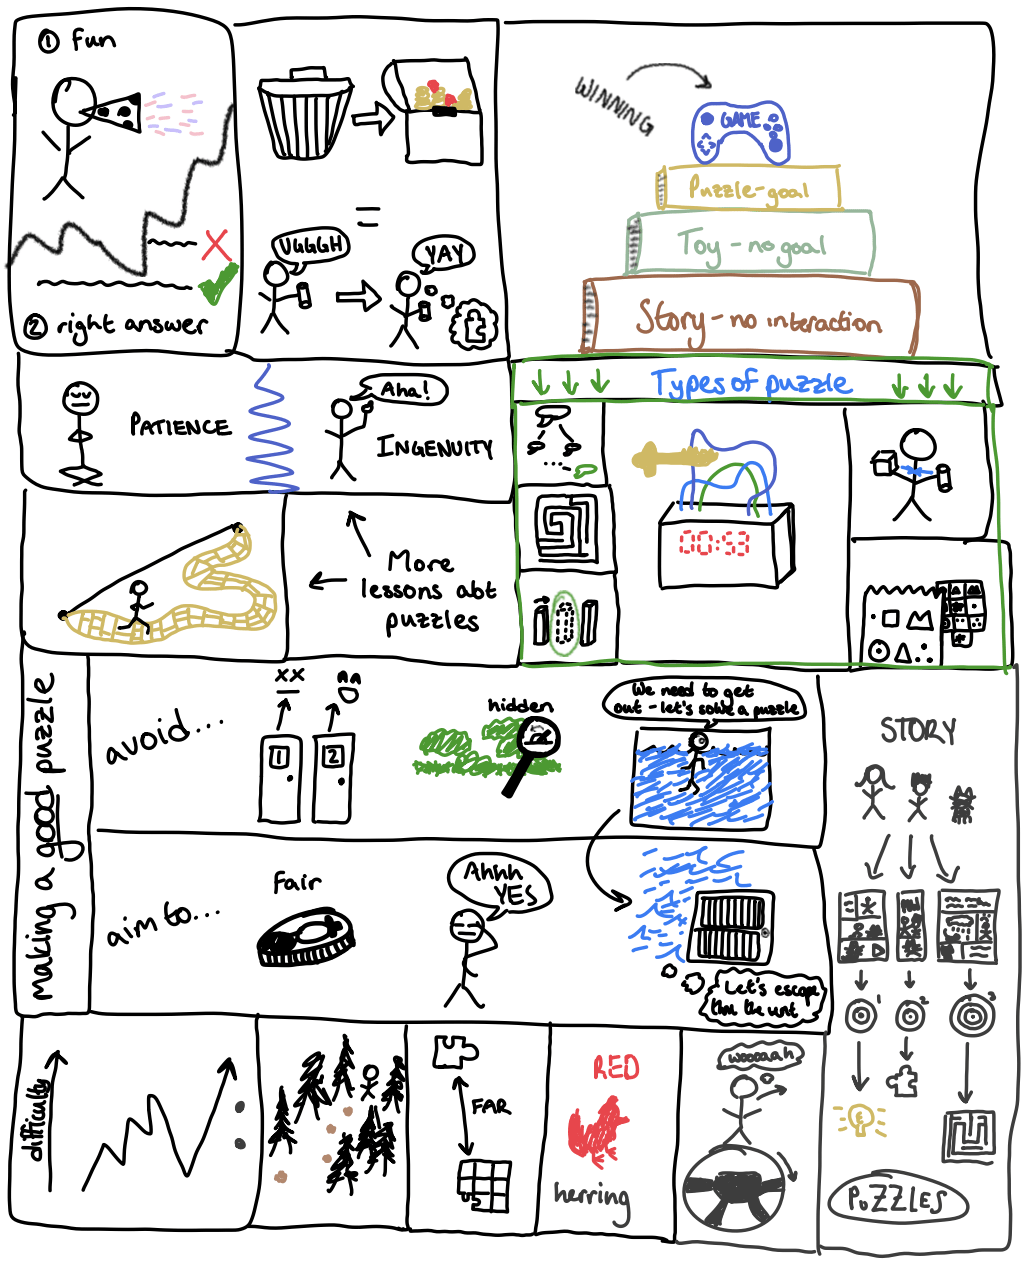 ① fun
② right answer
UGGGH
YAY
WINNING
GAME
Puzzle-goal
Toy - no goal
Story - no interaction
PATIENCE
Aha!
INGENUITY
Types of puzzle
00:53
More
lessons abt
puzzles
making a good puzzle
avoid...
XX
1
2
hidden
We need to get
out - let's solve a puzzle
aim to...
Fair
Ahhh
YES
Let's escape
thru the vent
STORY
1
2
3
PUZZLES
difficulty
FAR
RED
herring
woooaah